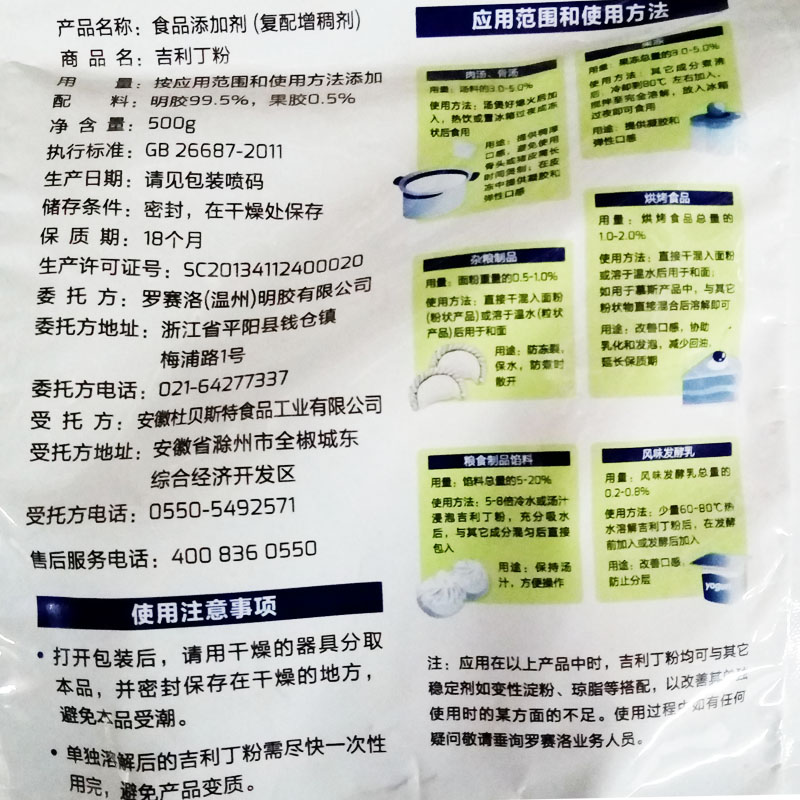 产品名称：食品添加剂(复配增稠剂)
商品名：吉利丁粉
用量：按应用范围和使用方法添加
配料：明胶99.5%，果胶0.5%
净含量：500g
执行标准：GB 26687-2011
生产日期：请见包装喷码
储存条件：密封，在干燥处保存
保质期：18个月
生产许可证号：SC20134112400020
委托方：罗赛洛(温州)明胶有限公司
委托方地址：浙江省平阳县钱仓镇
梅浦路1号
委托方电话：021-64277337
受托方：安徽杜贝斯特食品工业有限公司
受托方地址：安徽省滁州市全椒城东
综合经济开发区
受托方电话：0550-5492571
售后服务电话：400 836 0550
使用注意事项
• 打开包装后，请用干燥的器具分取
本品，并密封保存在干燥的地方，
避免本品受潮。
• 单独溶解后的吉利丁粉需尽快一次性
用完，避免产品变质。
应用范围和使用方法
肉汤、骨汤
用量：汤料的3.0-5.0%
使用方法：汤煲好熄火前加
入，热饮或置冰箱过夜成冻
状后食用
用途：提供稠厚
口感，避免使用
骨头或猪皮需长
时间煲制；在皮
冻中提供凝胶和
弹性口感
果冻
用量：果冻总量的3.0-5.0%
使用方法：其它成分煮沸
后，冷却到80℃左右加入，
搅拌至完全溶解，放入冰箱
过夜即可食用
用途：提供凝胶和
弹性口感
杂粮制品
用量：面粉重量的0.5-1.0%
使用方法：直接干混入面粉
(粉状产品)或溶于温水(粒状
产品)后用于和面
用途：防冻裂，
保水，防煮时
散开
烘烤食品
用量：烘烤食品总量的
1.0-2.0%
使用方法：直接干混入面粉
或溶于温水后用于和面；
如用于慕斯产品中，与其它
粉状物直接混合后溶解即可
用途：改善口感，协助
乳化和发泡，减少回油，
延长保质期
粮食制品馅料
用量：馅料总量的5-20%
使用方法：5-8倍冷水或汤汁
浸泡吉利丁粉，充分吸水
后，与其它成分混匀后直接
包入
用途：保持汤
汁，方便操作
风味发酵乳
用量：风味发酵乳总量的
0.2-0.8%
使用方法：少量60-80℃热
水溶解吉利丁粉后，在发酵
前加入或发酵后加入
用途：改善口感，
防止分层
注：应用在以上产品中时，吉利丁粉均可与其它
稳定剂如变性淀粉、琼脂等搭配，以改善其
使用时的某方面的不足。使用过程中如有任何
疑问敬请垂询罗赛洛业务人员。